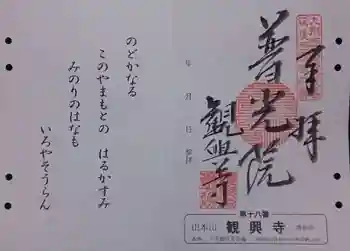 奉拝
普光院
観興寺
年 月 日
のどかなる
このやまもとの はるかすみ
みのりのはなも
いろやそうらん
第十八番
山本山 観興寺